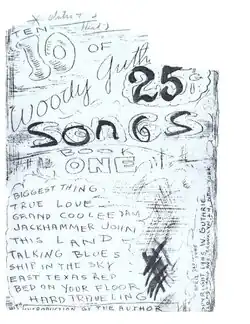 TEN
10
OF
Woody Guth
25¢
SONGS
BOOK
ONE
BIGGEST THING.
TRUE LOVE
GRAND COOLEE DAM
JACKHAMMER JOHN
THIS LAND
TALKING BLUES
SHIP IN THE SKY
EAST TEXAS RED
BED ON YOUR FLOOR
HARD TRAVELING
INTRODUCTION BY THE AUTHOR
1945 W. GUTHRIE